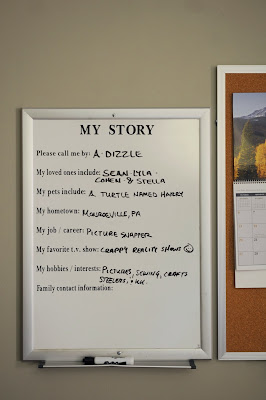 MY STORY
Please call me by: A·DIZZLE
My loved ones include: SEAN·LYLA·
COHEN·& STELLA
My pets include: A TURTLE NAMED HARRY
My hometown: MONROEVILLE, PA
My job / career: PICTURE SNAPPER
My favorite t.v. show: CRAPPY REALITY SHOWS ☺
My hobbies / interests: PICTURES, SEWING, CRAFTS
STEELERS,
Family contact information: